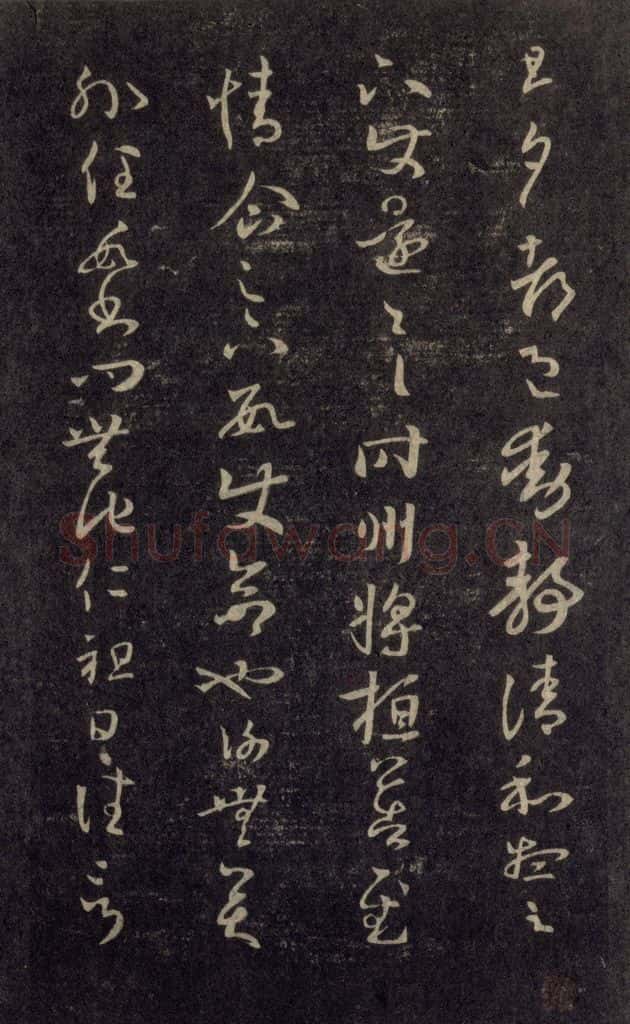 旦夕都邑動靜清和想足
下使還一一時州將桓公告慰
情企足下數使命也謝無奕
外任數書問無他仁祖日往言
Shufawang.CN